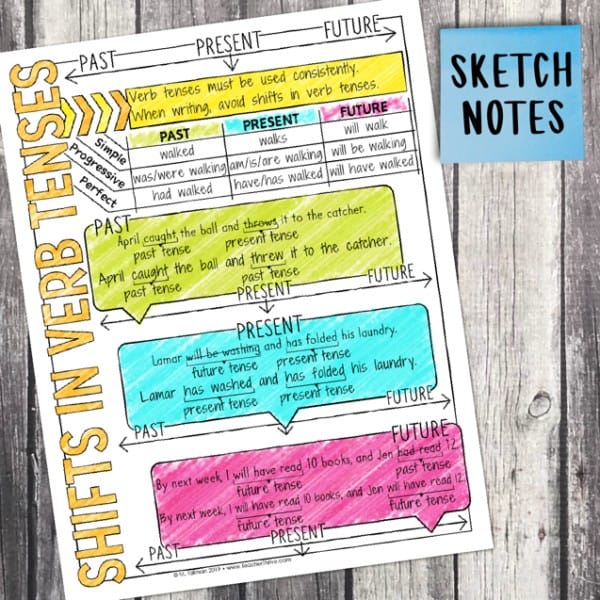 PAST
PRESENT
FUTURE
SKETCH
NOTES
SHIFTS IN VERB TENSES
Verb tenses must be used consistently.
When writing, avoid shifts in verb tenses.
PAST PRESENT FUTURE
Simple walked walks will walk
Progressive was/were walking am/is/are walking will be walking
Perfect had walked have/has walked will have walked
PAST
April caught the ball and throws it to the catcher.
past tense present tense
April caught the ball and threw it to the catcher.
past tense past tense
PRESENT
FUTURE
PRESENT
Lamar will be washing and has folded his laundry.
future tense present tense
Lamar has washed and has folded his laundry.
present tense present tense
PAST
FUTURE
FUTURE
By next week, I will have read 10 books, and Jen had read 12.
future tense past tense
By next week, I will have read 10 books, and Jen will have read 12.
future tense future tense
PAST
PRESENT
© M. Tallman 2019 • www.teacherthrive.com